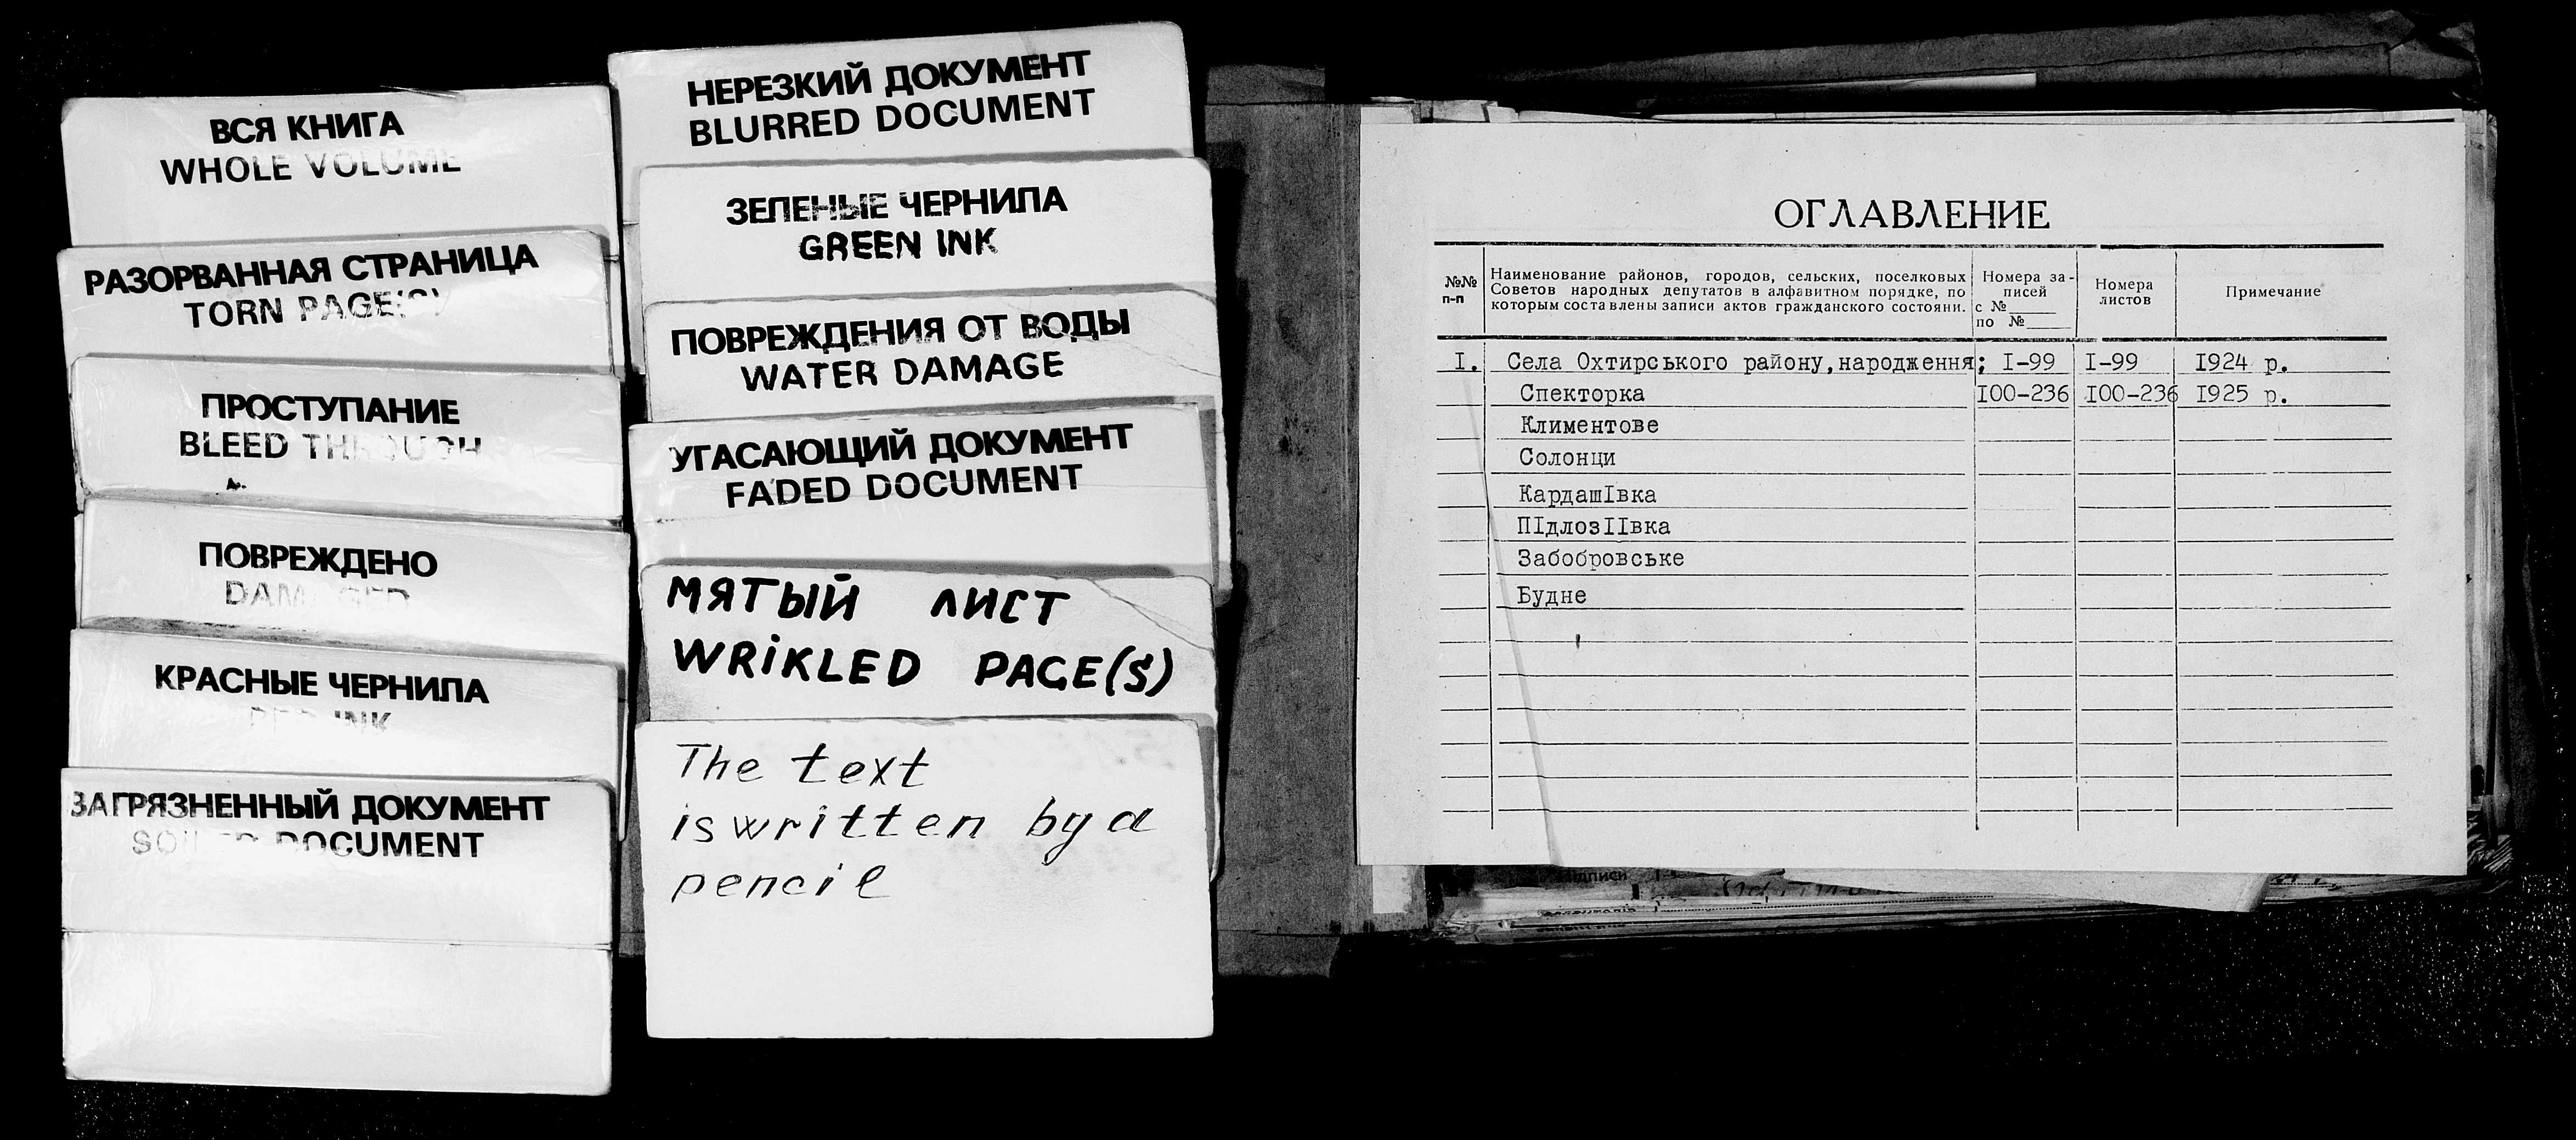 ВСЯ КНИГА
WHOLE VOLUME
РАЗОРВАННАЯ СТРАНИЦА
TORN PAGE(S)
ПРОСТУПАНИЕ
BLEED THROUGH
ПОВРЕЖДЕНО
DAMAGED
КРАСНЫЕ ЧЕРНИЛА
RED INK
ЗАГРЯЗНЕННЫЙ ДОКУМЕНТ
SOILED DOCUMENT
НЕРЕЗКИЙ ДОКУМЕНТ
BLURRED DOCUMENT
ЗЕЛЕНЫЕ ЧЕРНИЛА
GREEN INK
ПОВРЕЖДЕНИЯ ОТ ВОДЫ
WATER DAMAGE
УГАСАЮЩИЙ ДОКУМЕНТ
FADED DOCUMENT
МЯТЫЙ ЛИСТ
WRiKLED PAGE(S)
The text
is written by a
pencil
ОГЛАВЛЕНИЕ
№№ п-п
Наименование районов, городов, сельских, поселковых
Советов народных депутатов в алфавитном порядке, по
которым составлены записи актов гражданского состояни.
Номера за-
писей
с №____
по №____
Номера
листов
Примечание
I. Села Охтирського району, народження; I-99 I-99 I924 р.
Спекторка I00-236 I00-236 I925 р.
Климентове
Солонци
КардашIвка
ПIдлозIIвка
Забобровське
Будне
підписи